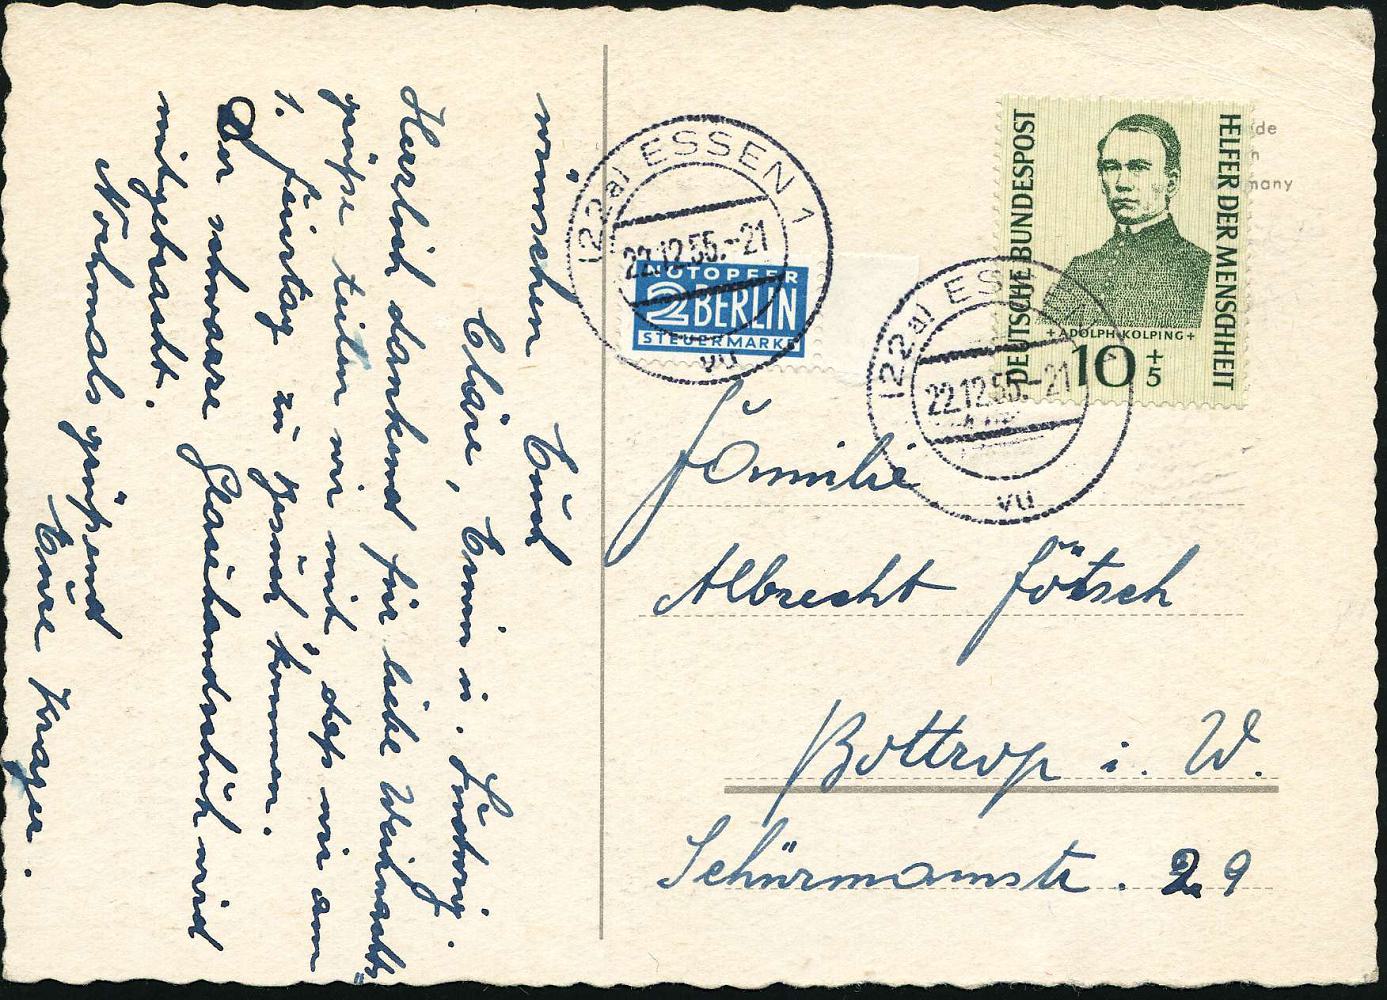 wünschen Euch
Cläre, Erwin u. Ludwig.
Herzlich dankend für liebe Weihnachts=
grüße teilen wir mit, daß wir am
1. Feiertag zu Besuch kommen.
Der schwarze Glacéhandschuh wird
mitgebracht.
Nochmals grüßend
Eure Krager.
(22a) ESSEN 1
22.12.55.-21
vu
NOTOPFER
2 BERLIN
STEUERMARKE
(22a) ESSEN 1
22.12.55.-21
vu
DEUTSCHE BUNDESPOST
HELFER DER MENSCHHEIT
+ADOLPH·KOLPING+
10+5
many
Familie
Albrecht Götsch
Bottrop i. W.
Schürmannstr. 29